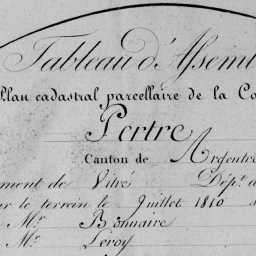 Tableau d'Assem
Plan cadastral parcellaire de la Co
Pertre
Canton de Argentré
ment de Vitré Dép.t d
ur le terrein le Juillet 1810 s
Mr. Bonnaire
Mr. Leroy